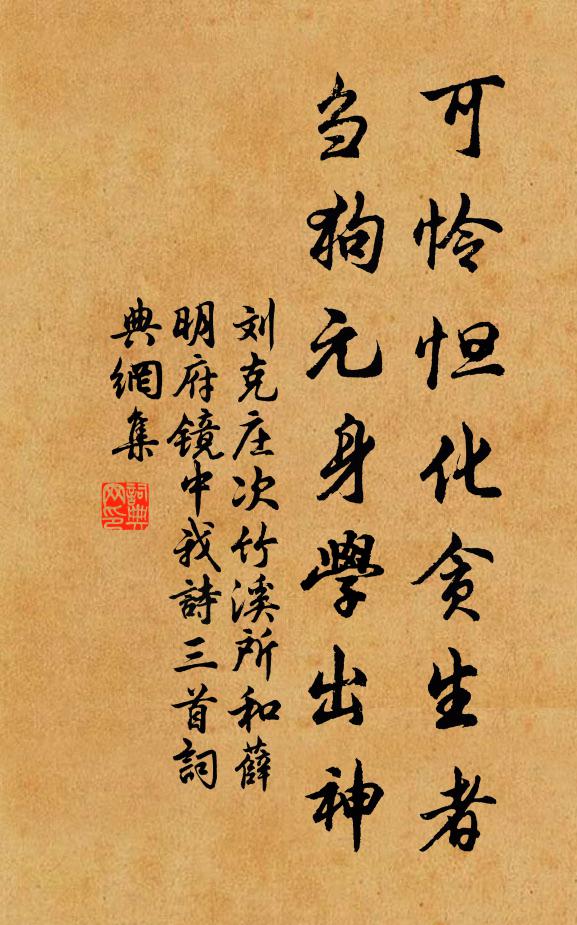 可怜怛化贪生者
刍狗元身學出神
刘克庄次竹溪所和薛
明府镜中我詩三首詞
典網集
詞典
网印